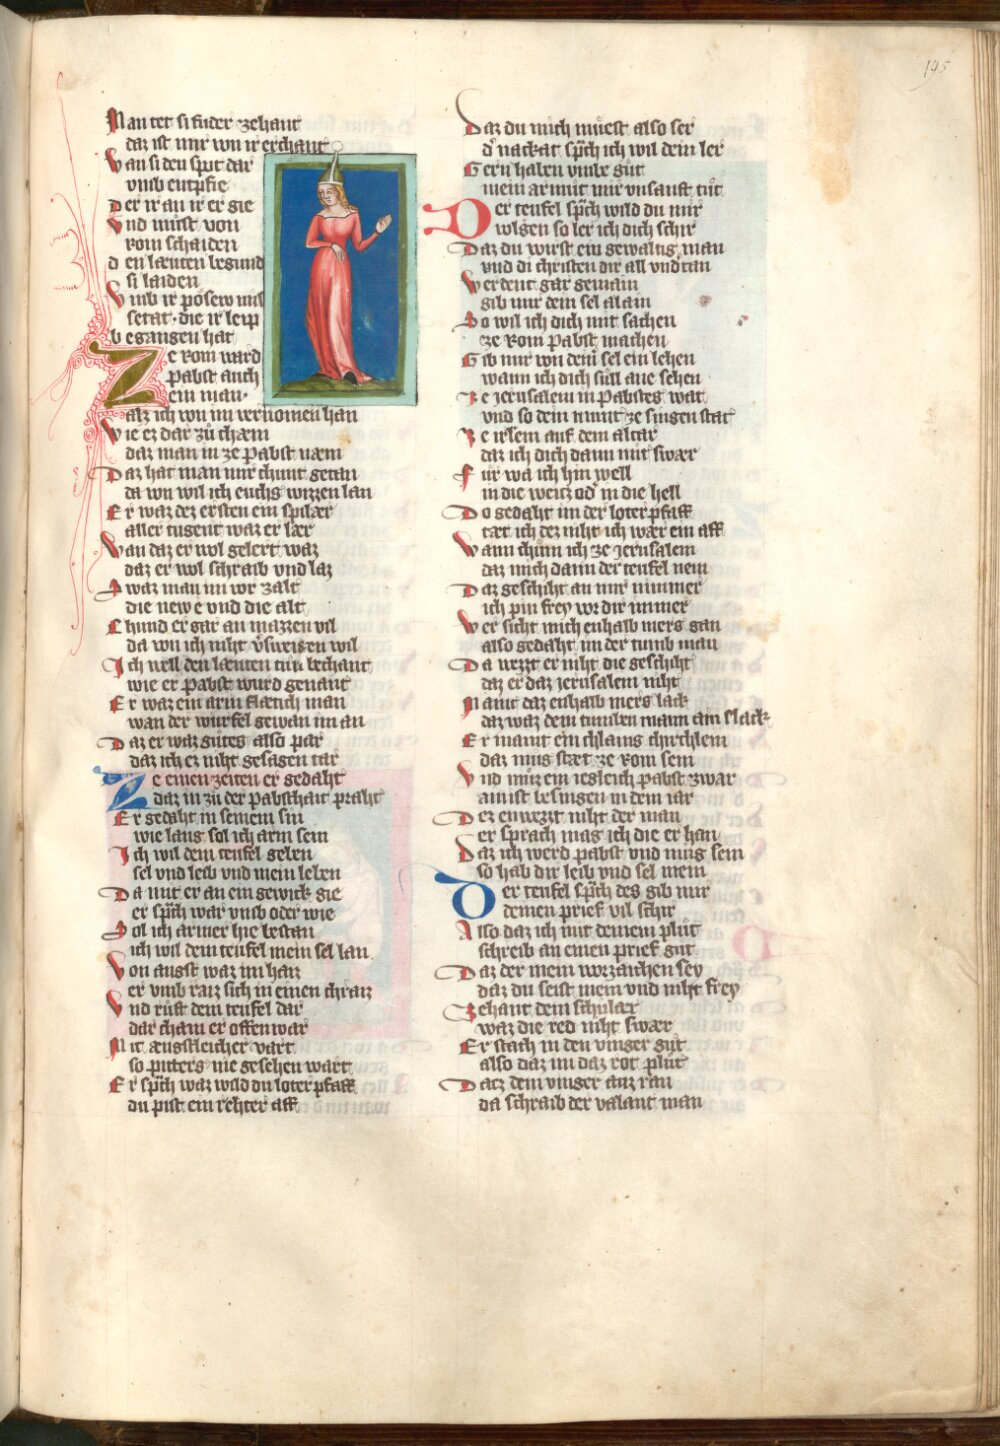 195
Man tet si sider zehant
daz ist mir von ir erchant
Wan si den spot dar
vmb entpfie
Der ir an ir er gie
Vnd must von
rom schaiden
den læuten begund
si laiden
Vmb ir posew mis
setat die ir leip
begangen hat
Ze rom ward
pabst auch
ein man
Alz ich von im vernomen han
Wie ez dar zů cham
daz man in ze pabst nam
Daz hat man mir chunt getan
da von wil ich euchs wizzen lan
Er waz dez ersten ein spilær
aller tugent waz er lær
Wan daz er wol gelert waz
daz er wol schraib vnd laz
Swaz man im vor zalt
die new e vnd die alt
Chund er gar an mazzen vil
da von ich niht v̓sweigen wil
Ich well den læuten tůn bechant
wie er pabst wurd genant
Er waz ein arm man
wan der wurfel gewan im an
Daz er waz gůtes also par
daz ich ez niht gesagen tar
Ze einen zeiten er gedaht
daz in zů der pabschaft praht
Er gedaht in seinem sin
wie lang sol ich arm sein
Ich wil dem teufel geben
sel vnd leib vnd mein leben
Da mit er an ein gewick gie
er sp̄ch war vmb oder wie
Sol ich armer hie bestan
ich wil dem teufel mein sel lan
Von angst waz im haiz
er vmb raiz sich in einen chraiz
Vnd růft dem teufel dar
dar cham er offenwar
Mit ængstleicher vart
so pitters nie gesehen wart
Er sp̄ch waz wild du loter pfaff
du pist ein rehter aff
Daz du mich můest also ser
d̓ nackat sp̄ch ich wil dein ler
Gern haben vmbe gůt
mein armůt mir vnsanft tůt
Der teufel sp̄ch wild du mir
volgen so ler ich dich schir
Daz du wirst ein gewaltig man
vnd di christen dir all vndtan
Werdent gar gemain
gib mir dein sel alain
So wil ich dich mit sachen
ze Rom pabst machen
Gib mir von deiner sel ein lehen
wann ich dich süll ane sehen
Ze Jerusalem in pabstes wat
vnd so dein munt ze singen stat
Ze irlem auf dem altar
daz ich dich dann mit swær
Für wa ich hin well
in die weitz od̓ in die hell
Do gedaht im der loter pfaff
tæt ich dez niht ich wær ein aff
Wann chum ich ze jerusalem
daz mich dann der teufel nem
Daz geschiht an mir nimmer
ich pin frey vor dir immer
Wer siht mich enhalb mers gan
also gedaht im der tumb man
Da west er niht die geschiht
daz er daz jerusalem niht
Maint daz enhalb mers lack
daz waz dem tumben mann ein slack
Er maint ein chlains chirchlein
daz mus stæt ze Rom sein
Vnd můz ein iegleich pabst zwar
ainst besingen in dem iar
Dez enwezzt niht der man
er sprach mag ich die er han
Daz ich werd pabst vnd mug sein
so hab dir leib vnd sel mein
Der teufel sp̄ch des gib mir
deinen prief vil schir
Also daz ich mit deinem plůt
schreib an einen prief gůt
Daz der mein worzaichen sey
daz du seist mein vnd niht frey
Zehant dem schulær
waz die red niht swær
Er stach in den vinger gůt
also daz im daz rot plůt
Datz dem vinger auz ran
da schraib der valant man